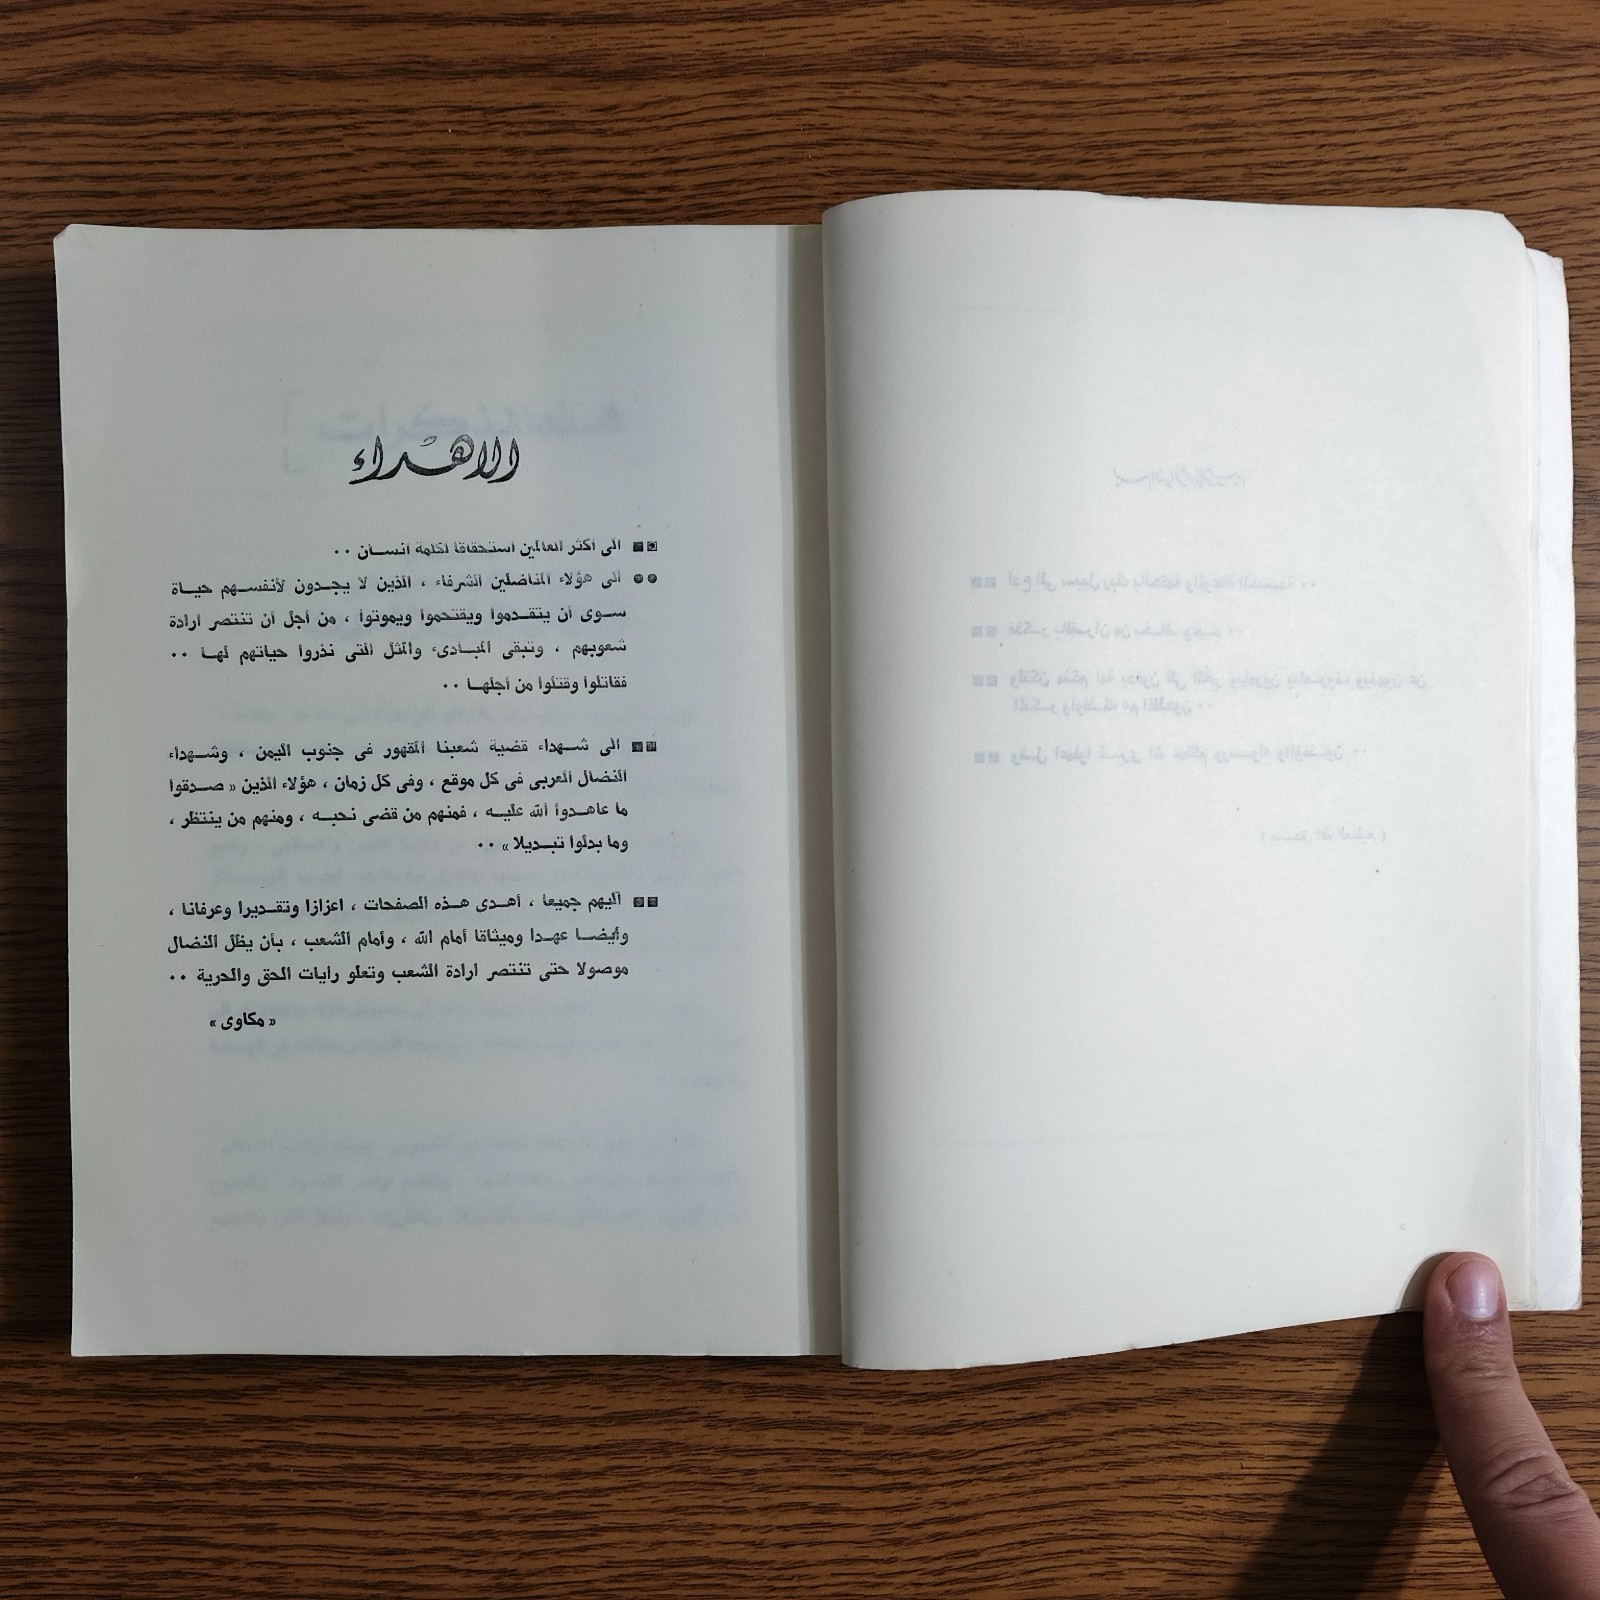 الاهداء
الى أكثر العالمين استحقاقا لكلمة انســان ٠٠
الى هؤلاء المناضلين الشرفاء ، الذين لا يجدون لأنفسهم حيـاة
ســوى أن يتقـدموا ويقتحموا ويموتوا ، من أجل أن تنتصر ارادة
شعوبهم ، وتبقى المبـادىء والمثل التى نذروا حياتهم لهـا ٠٠
فقاتلوا وقتلوا من أجلهـا ٠٠
الى شــهداء قضية شعبنا المقهور فى جنوب اليمن ، وشــهداء
النضال العربى فى كل موقع ، وفى كل زمان ، هؤلاء الذين « صـدقوا
ما عاهـدوا الله عليـه ، فمنهم من قضى نحبـه ، ومنهم من ينتظر ،
وما بدلوا تبـديلا » ٠٠
اليهم جميعا ، أهدى هـذه الصفحات ، اعزازا وتقـديرا وعرفانا ،
وأيضــا عهـدا وميثاقا أمام الله ، وأمام الشعب ، بأن يظل النضال
موصولا حتى تنتصر ارادة الشعب وتعلو رايات الحق والحرية ٠٠
« مكاوى »